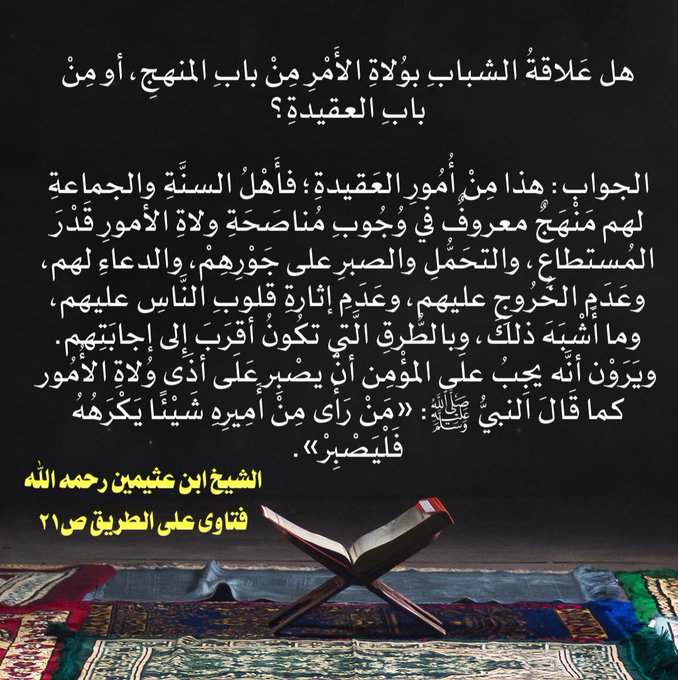 هل عَلاقةُ الشبابِ بوُلاةِ الأَمْرِ مِنْ بابِ المنهجِ، أو مِنْ
بابِ العقيدةِ؟
الجواب: هذا مِنْ أُمُورِ العَقيدةِ؛ فأَهْلُ السنَّةِ والجماعةِ
لهم مَنْهَجٌ معروفٌ في وُجُوبِ مُناصَحَةِ ولاةِ الأمورِ قَدْرَ
المُستطاعِ، والتحَمُّل والصبرِ على جَوْرِهِمْ، والدعاءِ لهم،
وعَدَمِ الخُروجِ عليهم، وعَدَمِ إثارةِ قلوبِ النَّاسِ عليهم،
وما أَشْبَهَ ذلكَ، وبالطُّرقِ الَّتي تكُونُ أقرَبَ إلى إجابَتِهم.
ويَرَوْن أنَّه يجِبُ على المؤْمن أنْ يصْبر عَلَى أذَى وُلاةِ الأُمُور
كما قَالَ النبيُّ ﷺ: «مَنْ رَأَى مِنْ أَمِيرِهِ شَيْئًا يَكْرَهُهُ
فَلْيَصْبِرْ».
الشيخ ابن عثيمين رحمه الله
فتاوى على الطريق ص٢١